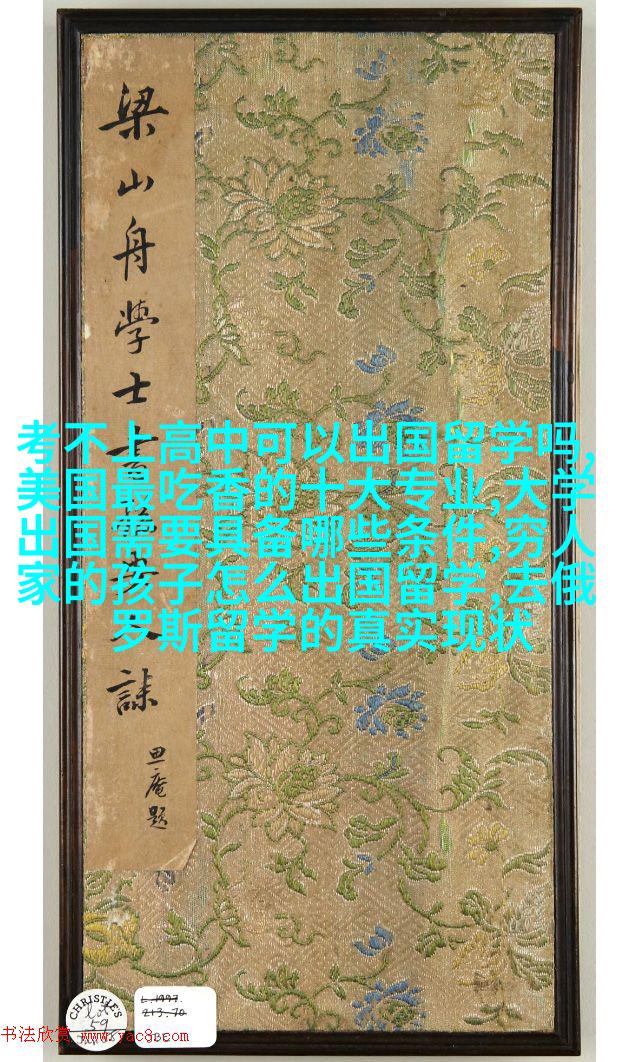 梁山舟學士
誄
思庵題
考不上高中可以出国留学吗,
美国最吃香的十大专业,大学
出国需要具备哪些条件,穷人
家的孩子怎么出国留学,去俄
罗斯留学的真实现状
CHRISTIE'S
Lot
59
L.1997.
213.70
书法欣赏 www.yac8.com